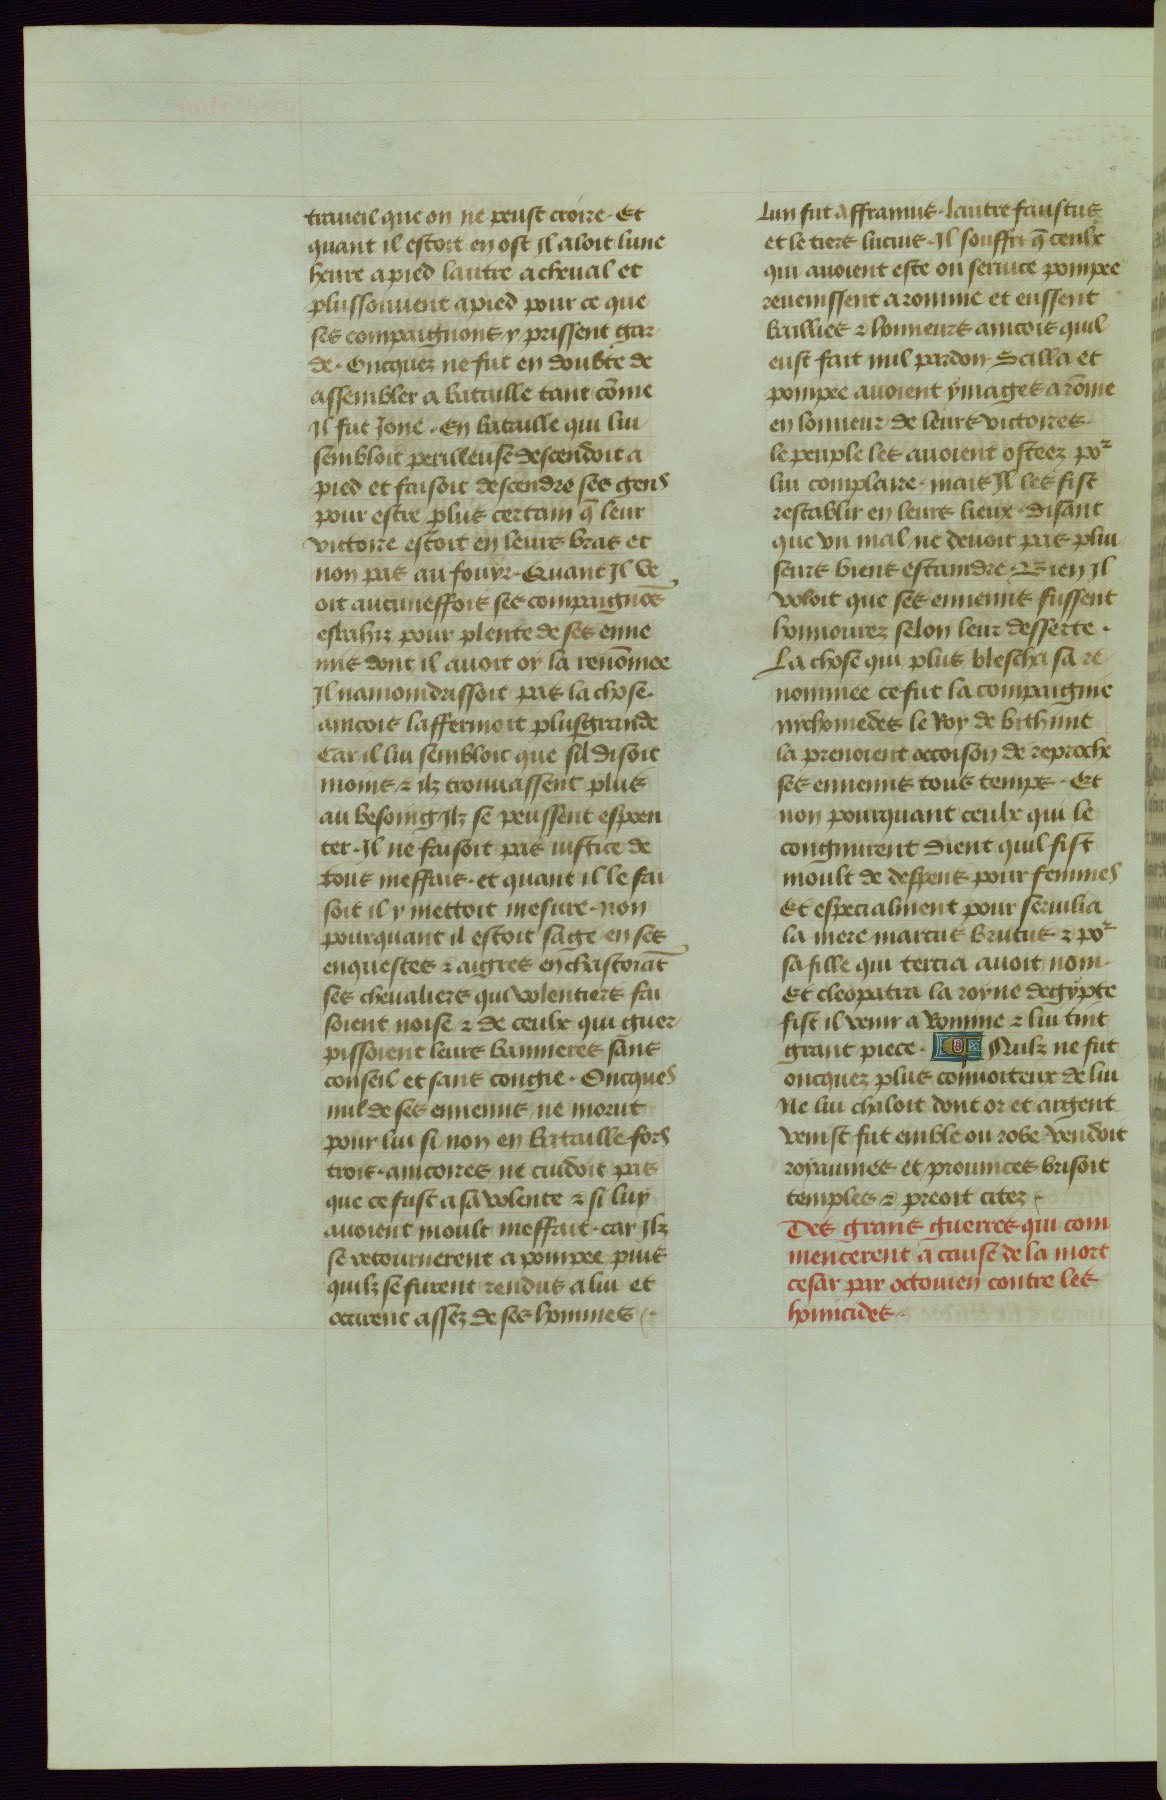 traueil que on ne peust croire. Et
quant il estoit en ost Il aloit lune
heure a pied lautre a cheual et
plussouuent a pied pour ce que
ses compaignons y prissent gar
de. Oncquez ne fut en doubte de
assembler a bataille tant cōme
Il fut Jone. En bataille qui lui
sembloit perilleuse descendoit a
pied et faisoit descendre ses gens
pour estre plus certain q̄ leur
victoire estoit en leurs bras et
non pas au fouyr. Quant Il ve
oit aucuneffois ses compaignōs
esbahiz pour plente de ses enne
mis dont il auoit oy la renōmee
Il namoindrissoit pas la chose.
aincois laffermoit plusgrande
Car il lui sembloit que sil disoit
moins ⁊ ilz trouuassent plus
au besoing Ilz se peussent espoen
ter. Il ne faisoit pas iustice de
tous meffais. et quant il le fai
soit il y mettoit mesure. non
pourquant il estoit sage en ses
enquestes ⁊ aigres en chastoiāt
ses cheualiers qui volentiers fai
soient noise ⁊ de ceulx qui guer
pissoient leurs bannieres sans
conseil et sans congie. Oncques
nul de ses ennemis ne morut
pour lui si non en bataille fors
trois. aincoires ne cuidoit pas
que ce fust a sa volente ⁊ si luy
auoient moult meffait. car Ilz
se retournerent a pompee puis
quilz se furent rendus a lui et
occirent assez de ses hommes
Lun fut affranius. lautre faustus
et le tiers lucius. Il souffri q̄ ceulx
qui auoient este ou seruice pompee
reuenissent a romme et eussent
baillies ⁊ honneurs aincois quil
eust fait nul pardon. Scilla et
pompee auoient ymages a rōme
en lonneur de leurs victoires.
le peuple les auoient osteez por
lui complaire. mais Il les fist
restablir en leurs lieux. disant
que vn mal ne deuoit pas plui
seurs biens estaindre. Bien Il
voloit que ses ennemis fussent
honnourez selon leur desserte.
La chose qui plus blescha sa re
nommee ce fut la compaignie
nichomedes le Roy de bithinie
la prenoient occoison de reproche
ses ennemis tous temps. Et
non pourquant ceulx qui le
congnurent dient quil fist
moult de despens pour femmes
Et especialment pour seruilia
la mere marcus brutus ⁊ por
sa fille qui tercia auoit nom.
Et cleopatra la royne degypte
fist il venir a Romme ⁊ lui tint
grant piece. Nulz ne fut
oncquez plus conuoiteux de lui
Ne lui chaloit dont or et argent
venist fut emble ou robe vendoit
royaumes et prouinces brisoit
temples ⁊ preoit citez
Des grans guerres qui com
mencerent a cause de la mort
cesar par octouien contre les
homicides.